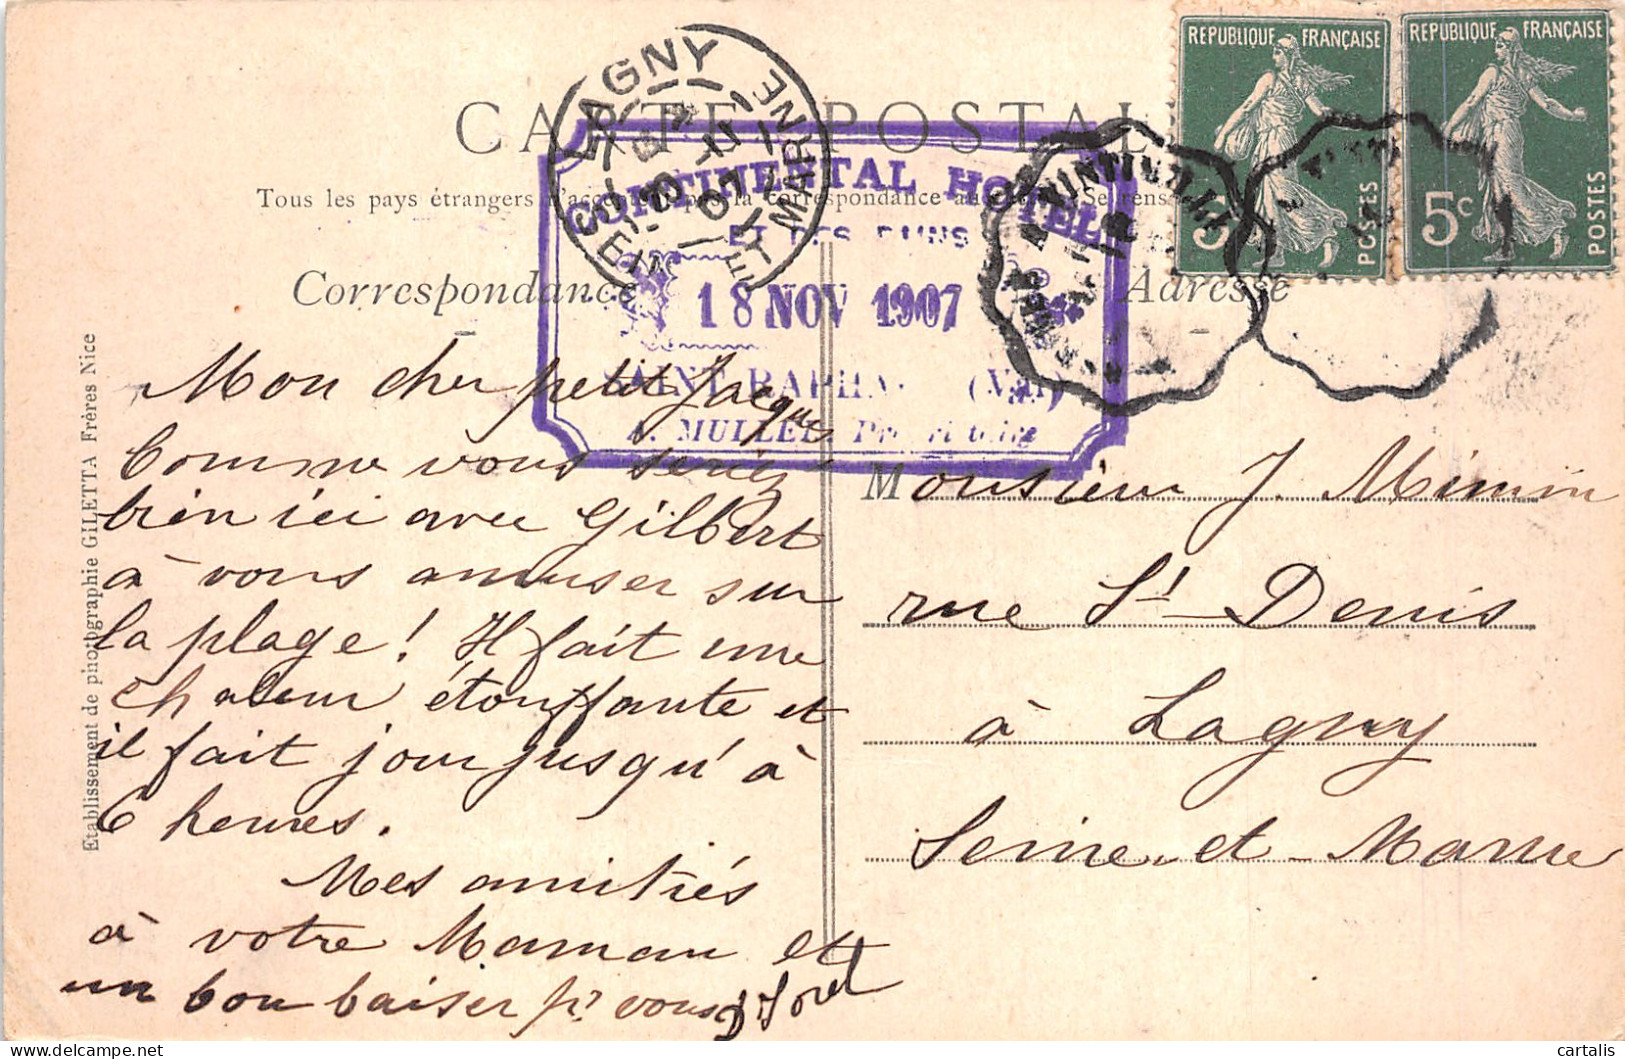 RÉPUBLIQUE FRANÇAISE
5c
POSTES
RÉPUBLIQUE FRANÇAISE
5c
POSTES
LAGNY
SEINE ET MARNE
CARTE POSTALE
Tous les pays étrangers la correspondance au
Correspondance
Adresse
CONTINENTAL HOTEL
ET DES BAINS
18 NOV 1907
SAINT RAPHAEL (Var)
A. MULLER, Propriétaire
Etablissement de photographie GILETTA Frères Nice
Mon cher petit Jacques
Comme vous seriez
bien ici avec Gilbert
à vous amuser sur
la plage! Il fait une
chaleur étouffante et
il fait jour jusqu'à
6 heures.
Mes amitiés
à votre Maman et
un bon baiser pr vous
Monsieur J. Mimin
rue St Denis
à Lagny
Seine et Marne
cartalis